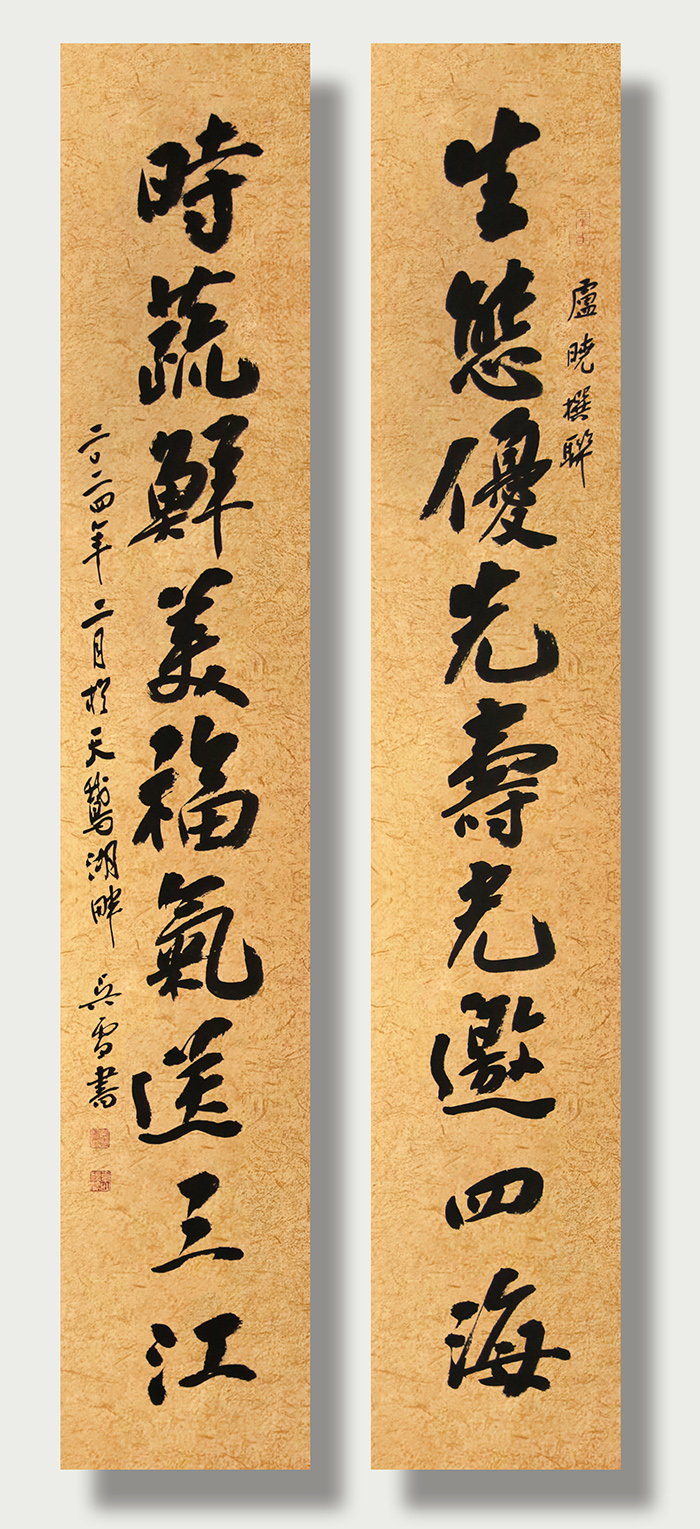 生態優先壽光邀四海
盧曉撰聯
時蔬鮮美福氣送三江
二〇二四年二月於天鵝湖畔 吳雪書